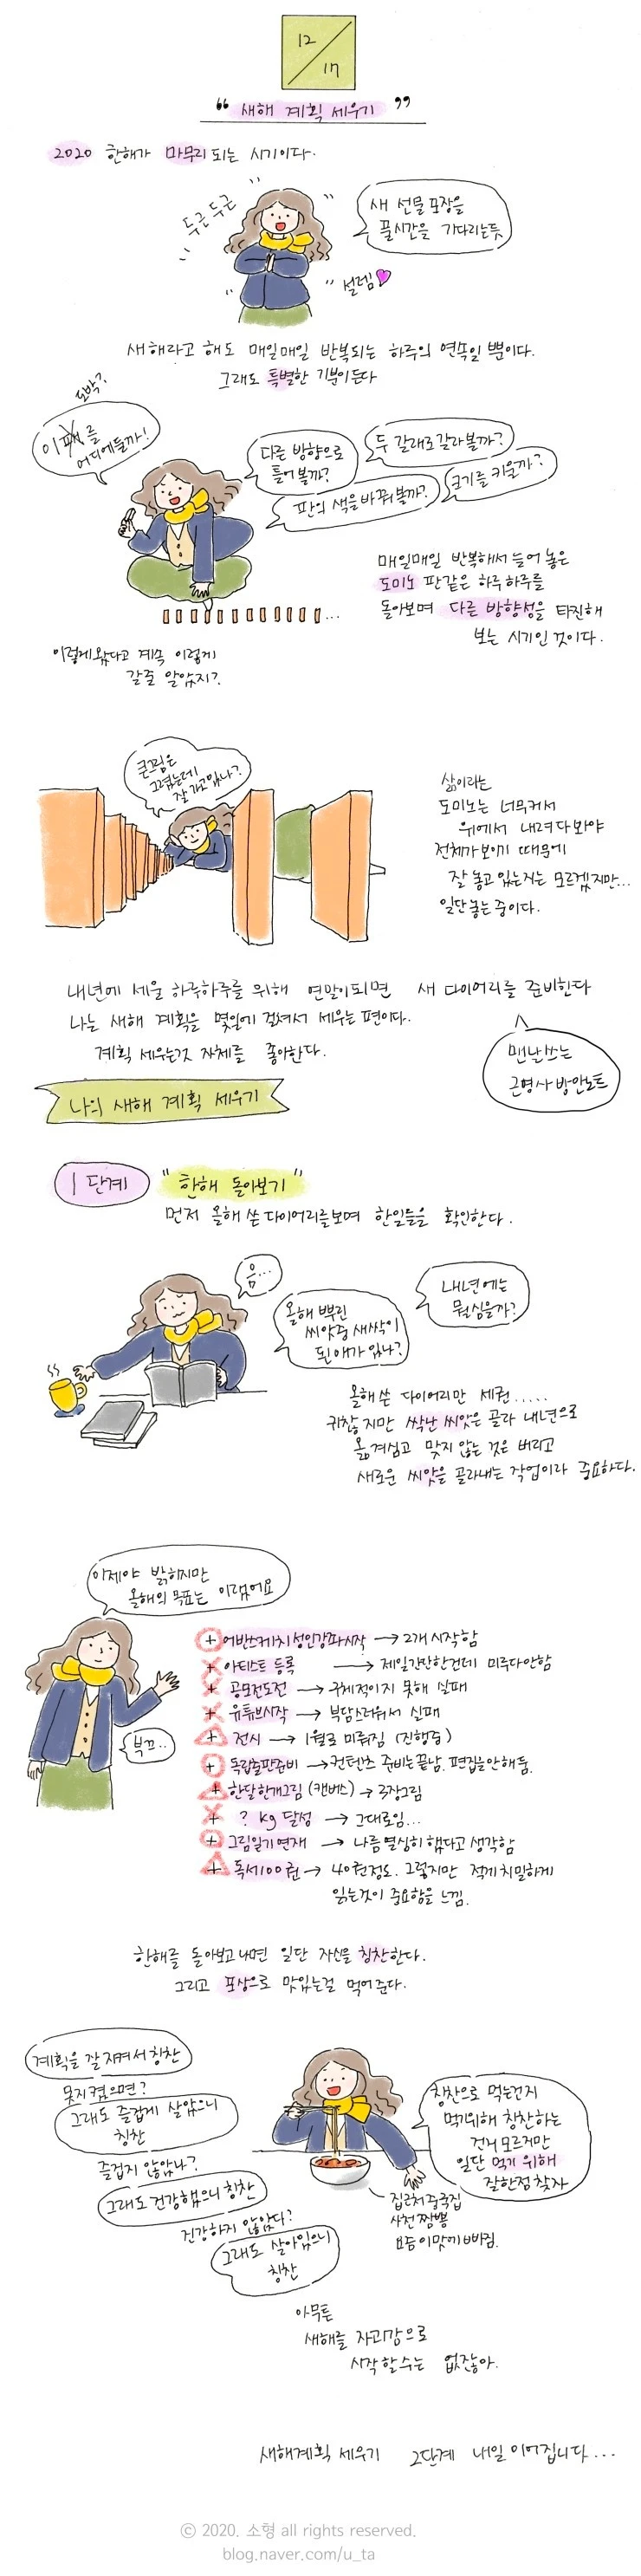 12
17
"새해 계획 세우기"
2020 한해가 마무리 되는 시기이다.
두근두근
새 선물 포장을
풀시간을 기다리는듯
설렘
새해라고 해도 매일매일 반복되는 하루의 연속일 뿐이다.
그래도 특별한 기분이든다
도박?
이 패를
어디에둘까!
다른 방향으로
틀어볼까?
두 갈래로 갈라볼까?
판의 색을 바꿔볼까?
크기를 키울까?
매일매일 반복해서 늘어 놓은
도미노 판같은 하루하루를
돌아보며 다른 방향성을 타진해
보는 시기인 것이다.
이렇게왔다고 계속 이렇게
갈줄 알았지?
큰그림은
그렸는데
잘 가고있나?
삶이라는
도미노는 너무커서
위에서 내려다봐야
전체가보이기 때문에
잘 놓고 있는지는 모르겠지만...
일단놓는중이다.
내년에 세울 하루하루를 위해 연말이되면 새 다이어리를 준비한다
나는 새해 계획을 몇일에 걸쳐서 세우는 편이다.
계획 세우는것 자체를 좋아한다.
맨날쓰는
근영사 방안노트
나의 새해 계획 세우기
1단계 "한해 돌아보기"
먼저 올해 쓴 다이어리를보며 한일들을 확인한다.
음...
올해 뿌린
씨앗중 새싹이
된애가 있나?
내년에는
뭘심을까?
올해 쓴 다이어리만 세권.....
귀찮지만 싹난 씨앗은 골라 내년으로
옮겨심고 맞지 않는 것은 버리고
새로운 씨앗을 골라내는 작업이라 중요하다.
이제야 밝히지만
올해의 목표는 이랬어요
부끄..
+ 어반스케치 성인강좌시작 → 2개 시작함
+ 아티스트 등록 → 제일간단한건데 미루다안함
+ 공모전도전 → 구체적이지 못해 실패
+ 유튜브시작 → 부담스러워서 실패
+ 전시 → 1월로 미뤄짐 (진행중)
+ 독립출판준비 → 컨텐츠 준비는끝남. 편집을안해둠.
+ 한달한개그림 (캔버스) → 3장그림
+ ? kg 달성 → 그대로임...
+ 그림일기연재 → 나름열심히 했다고 생각함
+ 독서100권 → 40권정도. 그렇지만 적게치밀하게
읽는것이 중요함을 느낌.
한해를 돌아보고나면 일단 자신을 칭찬한다.
그리고 포상으로 맛있는걸 먹어준다.
계획을 잘지켜서 칭찬
못지켰으면?
그래도 즐겁게 살았으니
칭찬
즐겁지 않았나?
그래도 건강했으니 칭찬
건강하지 않았다?
그래도 살아있으니
칭찬
칭찬으로 먹는건지
먹기위해 칭찬하는
건지 모르지만
일단 먹기 위해
잘한점 찾자
집근처 중국집
사천짬뽕
요즘이맛에빠짐.
아무튼
새해를 자괴감으로
시작할수는 없잖아.
새해계획 세우기 2단계 내일 이어집니다...
ⓒ 2020. 소형 all rights reserved.
blog.naver.com/u_ta